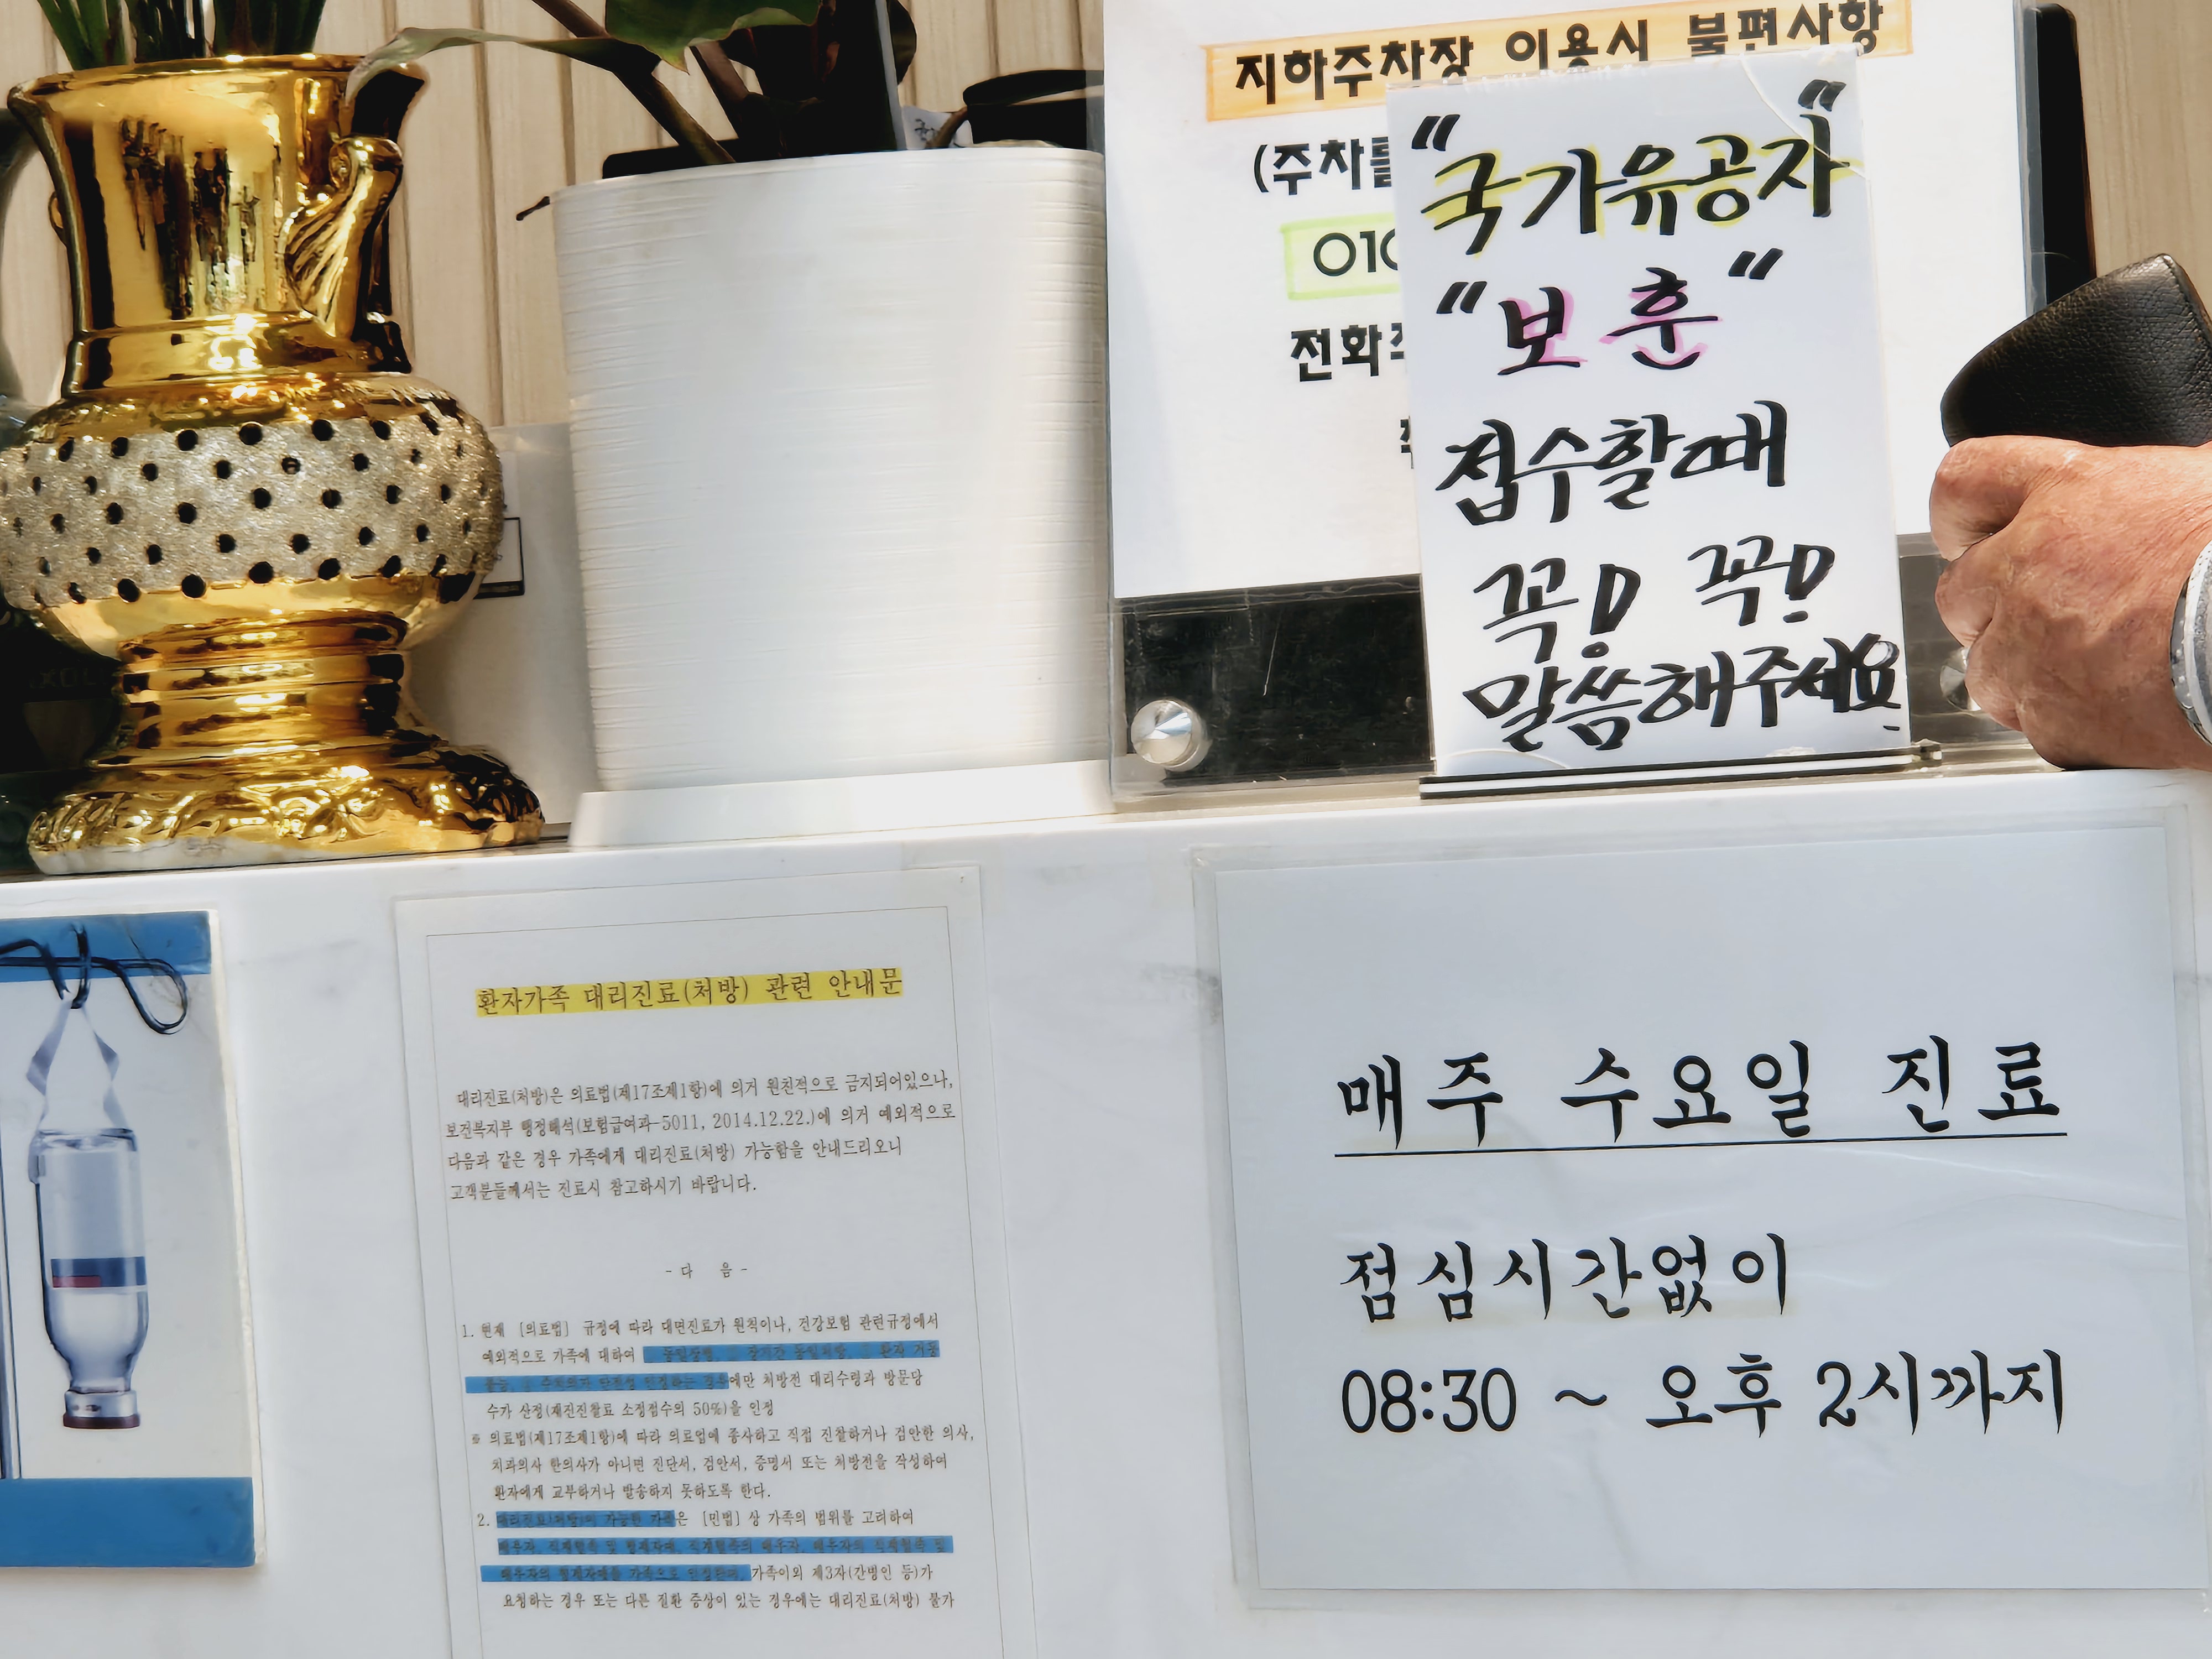 지하주차장 이용시 불편사항
(주차를
010
전화주
"국가유공자"
"보훈"
접수할때
꼭! 꼭!
말씀해주세요
환자가족 대리진료(처방) 관련 안내문
대리진료(처방)은 의료법(제17조제1항)에 의거 원친적으로 금지되어있으나,
보건복지부 행정해석(보험급여과-5011, 2014.12.22.)에 의거 예외적으로
다음과 같은 경우 가족에게 대리진료(처방) 가능함을 안내드리오니
고객분들께서는 진료시 참고하시기 바랍니다.
- 다 음 -
1. 현재 [의료법] 규정에 따라 대면진료가 원칙이나, 건강보험 관련규정에서
예외적으로 가족에 대하여 동일상병, 장기간 동일처방, 환자 거동
불능, 주치의가 안전성 인정하는 경우에만 처방전 대리수령과 방문당
수가 산정(재진진찰료 소정점수의 50%)을 인정
※ 의료법(제17조제1항)에 따라 의료업에 종사하고 직접 진찰하거나 검안한 의사,
치과의사 한의사가 아니면 진단서, 검안서, 증명서 또는 처방전을 작성하여
환자에게 교부하거나 발송하지 못하도록 한다.
2. 대리진료(처방)이 가능한 가족은 [민법] 상 가족의 범위를 고려하여
배우자, 직계혈족 및 형제자매, 직계혈족의 배우자, 배우자의 직계혈족 및
배우자의 형제자매를 가족으로 인정하며, 가족이외 제3자(간병인 등)가
요청하는 경우 또는 다른 질환 증상이 있는 경우에는 대리진료(처방) 불가
매주 수요일 진료
점심시간없이
08:30 ~ 오후 2시까지